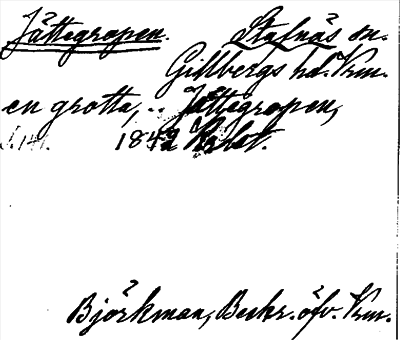 Jättegropen. Stafnäs sn.
Gillbergs hd. Vrm.
en grotta, .. Jättegropen,
S. 141. 1842
Björkman, Beskr. öfv. Vrm.